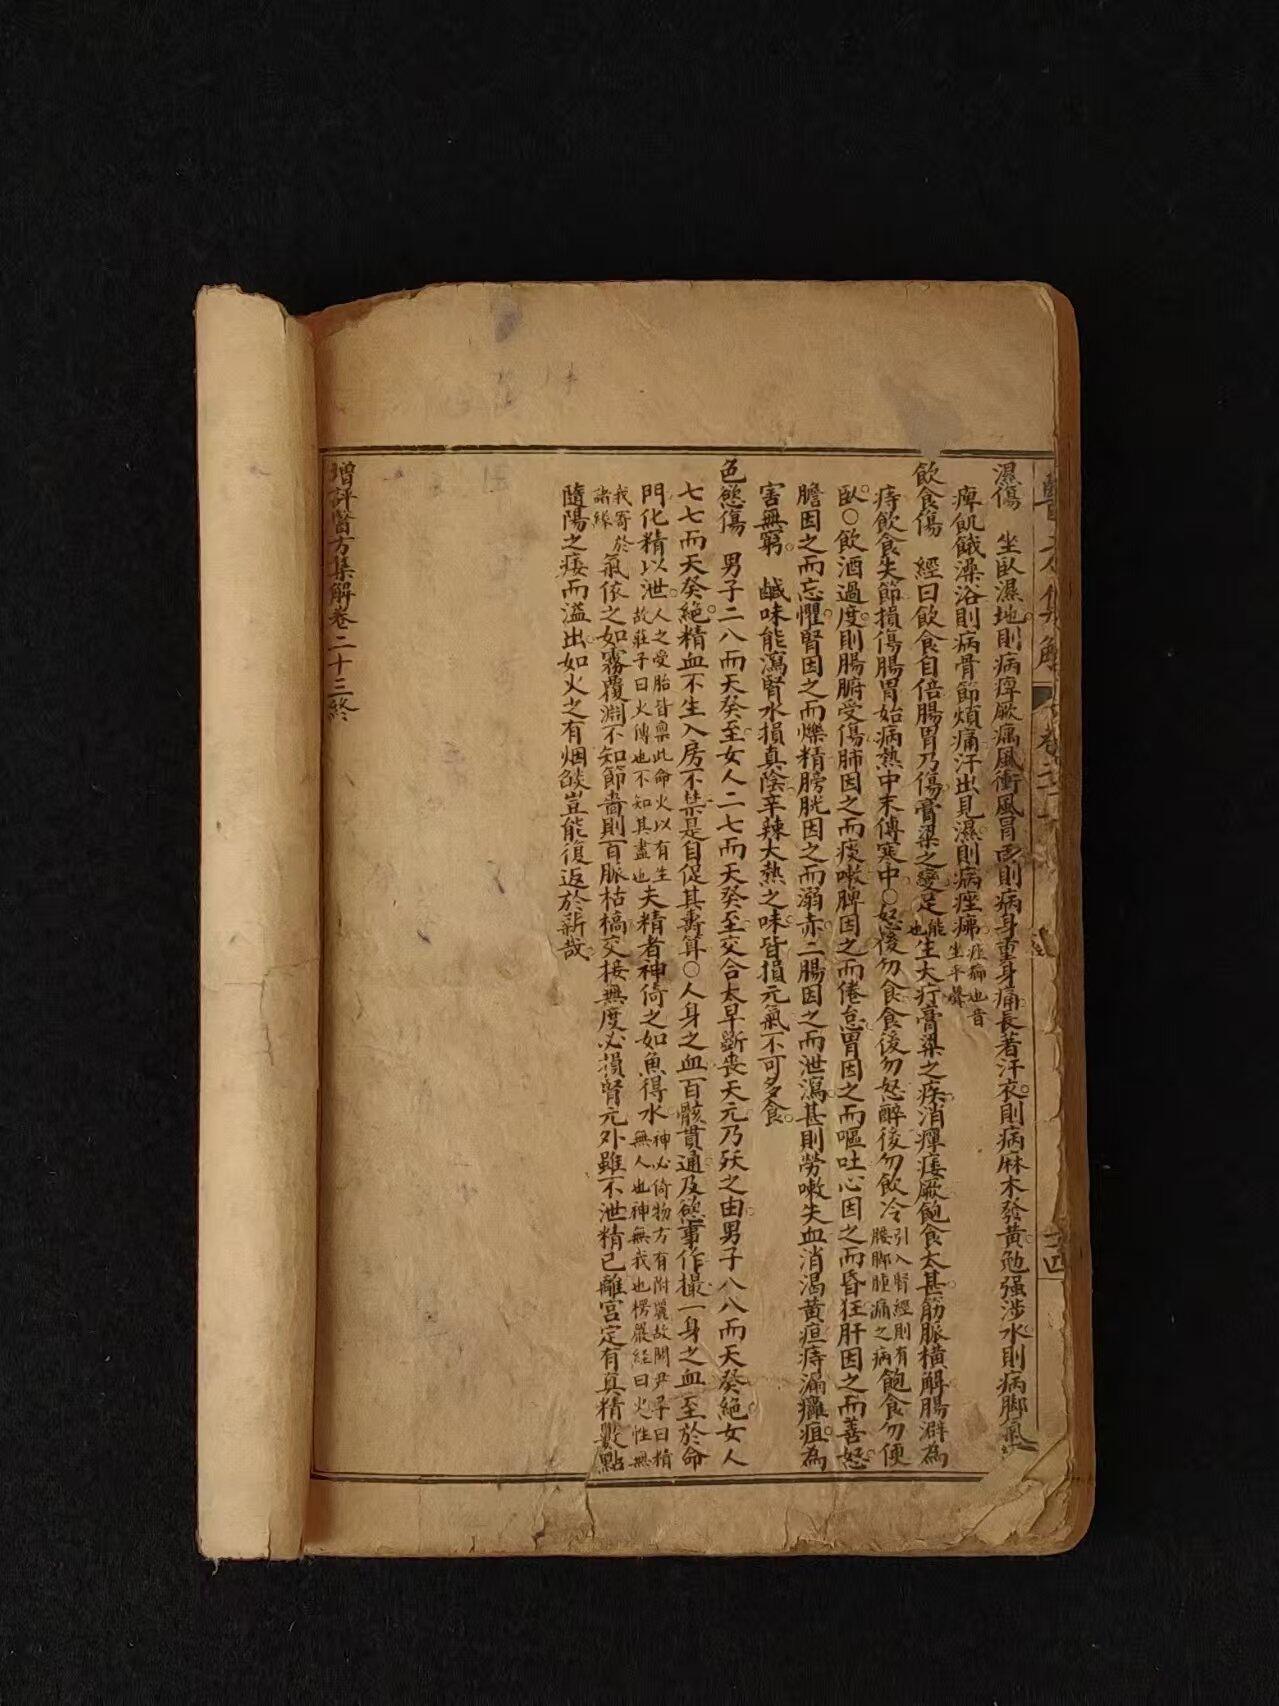 濕傷　坐臥濕地則病痺厥痛風衝風冒雨則病身重身痛長著汗衣則病麻木發黃勉强涉水則病脚氣
痺飢餓澡浴則病骨節煩痛汗出見濕則病痤疿痤癤也音坐平聲
飲食傷　經曰飲食自倍腸胃乃傷膏粱之變足能也生大疔膏粱之疾消癉痿厥飽食太甚筋脈橫解腸澼為
痔飲食失節損傷腸胃始病熱中末傳寒中○怒後勿食食後勿怒醉後勿飲冷引入腎經則有腰脚腫痛之病飽食勿便
臥○飲酒過度則腸腑受傷肺因之而痰嗽脾因之而倦怠胃因之而嘔吐心因之而昏狂肝因之而善怒
膽因之而忘懼腎因之而爍精膀胱因之而溺赤二腸因之而泄瀉甚則勞嗽失血消渴黃疸痔漏癰疽為
害無窮　鹹味能瀉腎水損真陰辛辣大熱之味皆損元氣不可多食
色慾傷　男子二八而天癸至女人二七而天癸至交合太早斷喪天元乃夭之由男子八八而天癸絕女人
七七而天癸絕精血不生入房不禁是自促其壽算○人身之血百骸貫通及慾事作撮一身之血至於命
門化精以泄人之受胎皆稟此命火以有生故莊子曰火傳也不知其盡也夫精者神倚之如魚得水神必倚物方有附麗故關尹子曰精無人也神無我也楞嚴經曰火性無
我寄於諸緣氣依之如霧覆淵不知節嗇則百脈枯槁交接無度必損腎元外雖不泄精已離宮定有真精數點
隨陽之痿而溢出如火之有烟燄豈能復返於薪哉
增評醫方集解卷二十三終